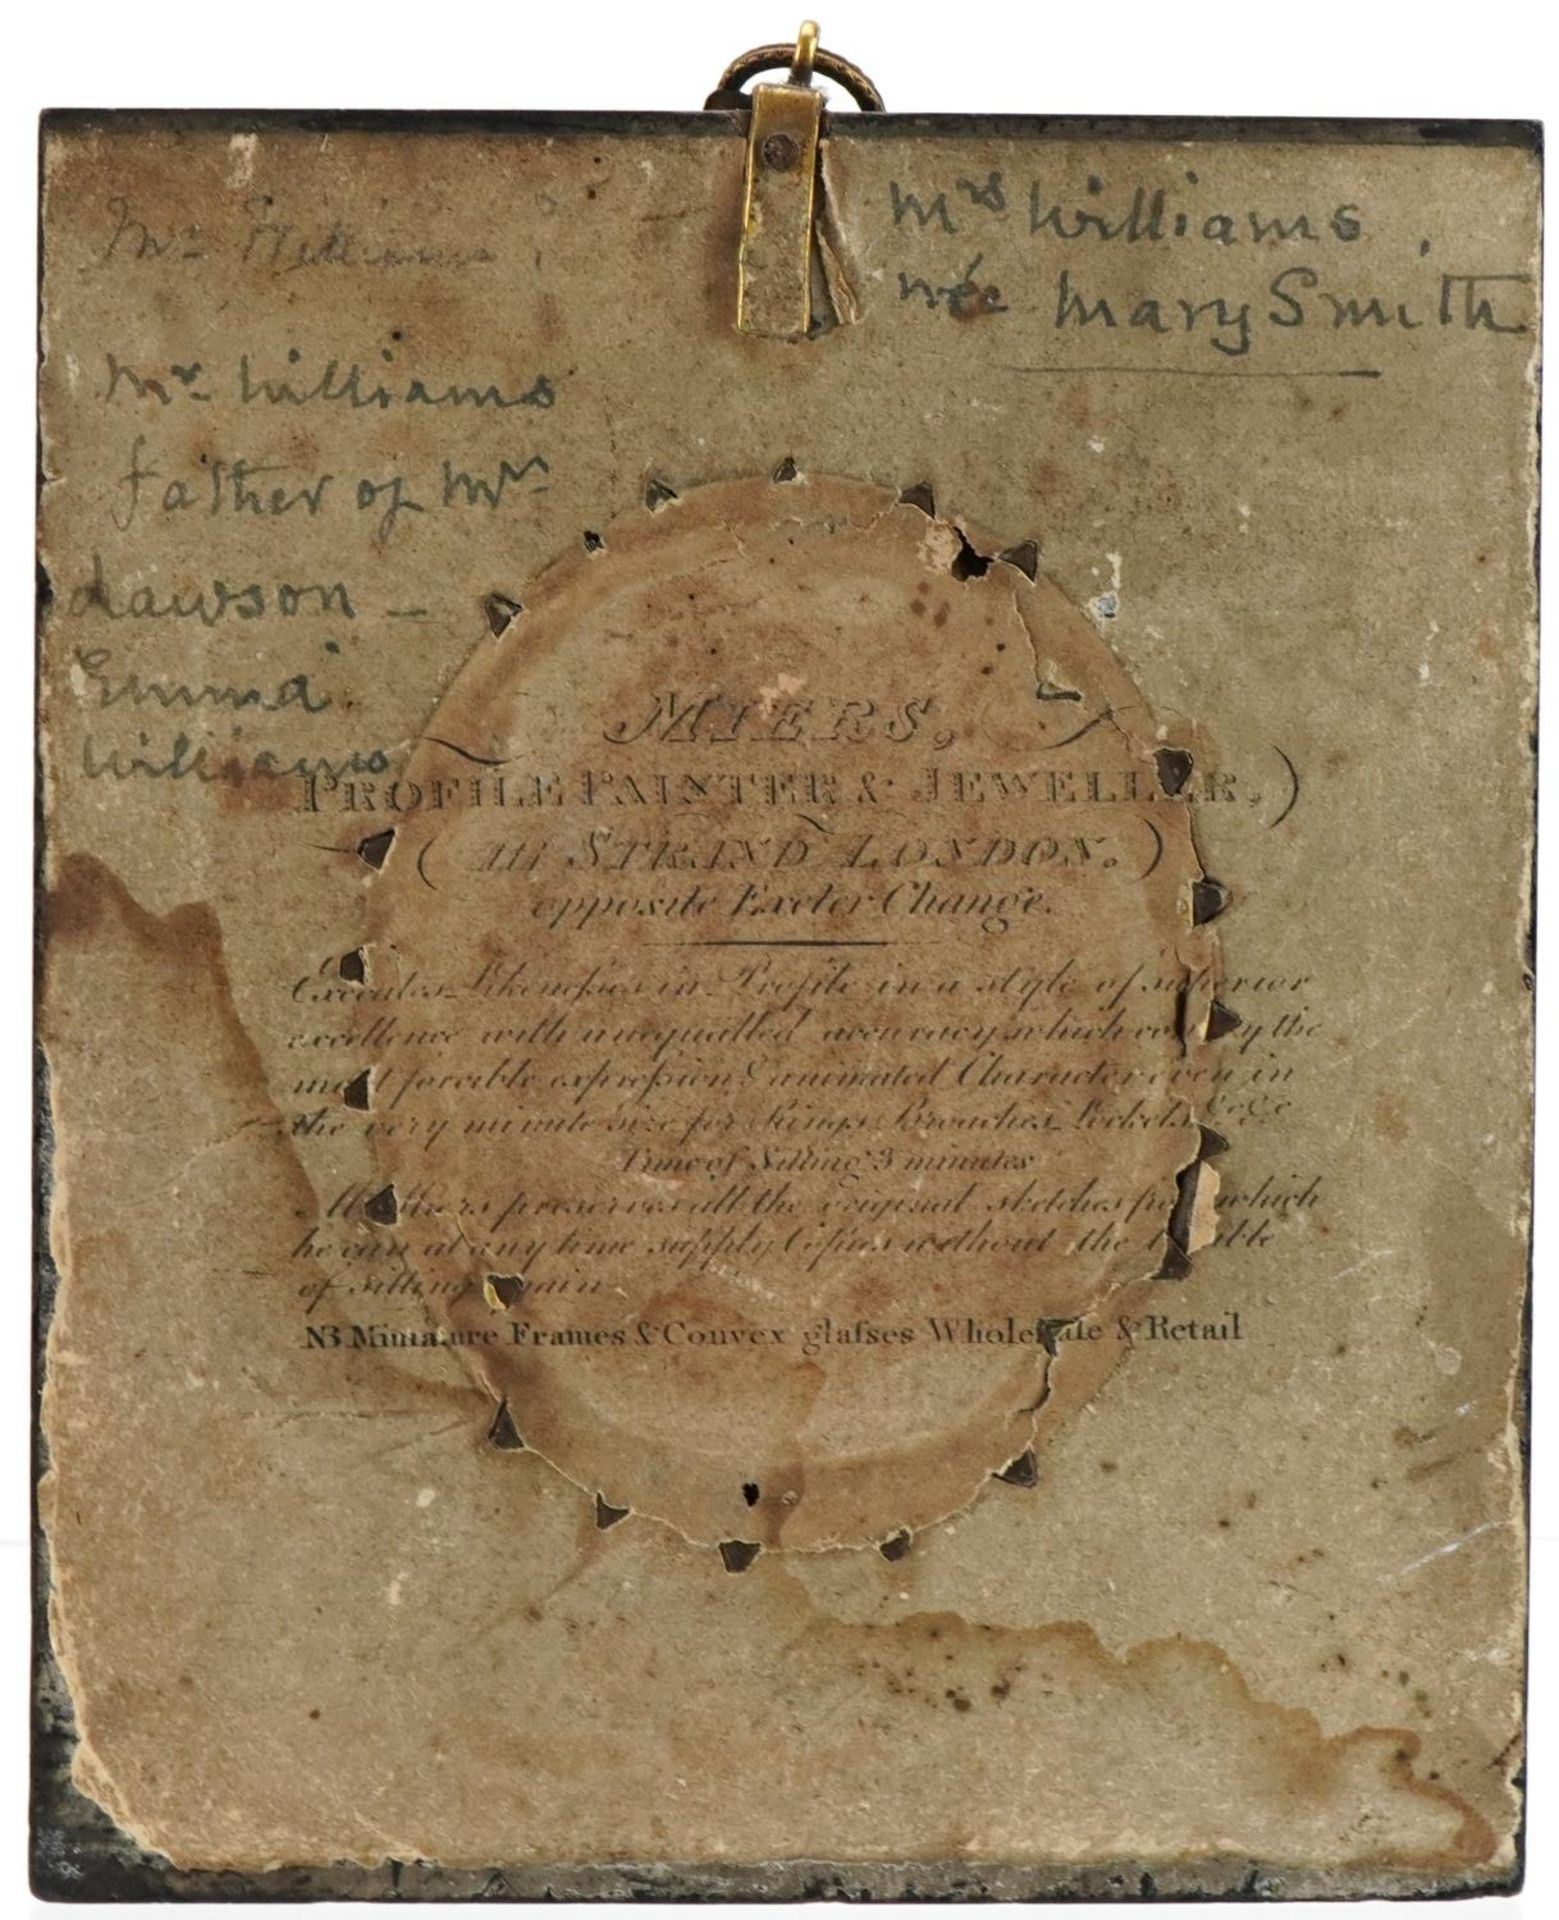 Mr. Williams,
Mrs Williams,
née Mary Smith
Mr Williams
father of Mrs
dawson –
Emma
Williams
MIERS,
PROFILE PAINTER & JEWELLER,
111 STRAND LONDON.
opposite Exeter Change.
Executes Likenesses in Profile in a style of superior
excellence with unequalled accuracy which convey the
most forcible expression & animated Character even in
the very minute size for Rings, Broaches, Lockets, &c &c
Time of Sitting 3 minutes
Miers preserves all the original sketches from which
he can at any time supply Copies without the trouble
of sitting again
NB Miniature Frames & Convex glasses Wholesale & Retail